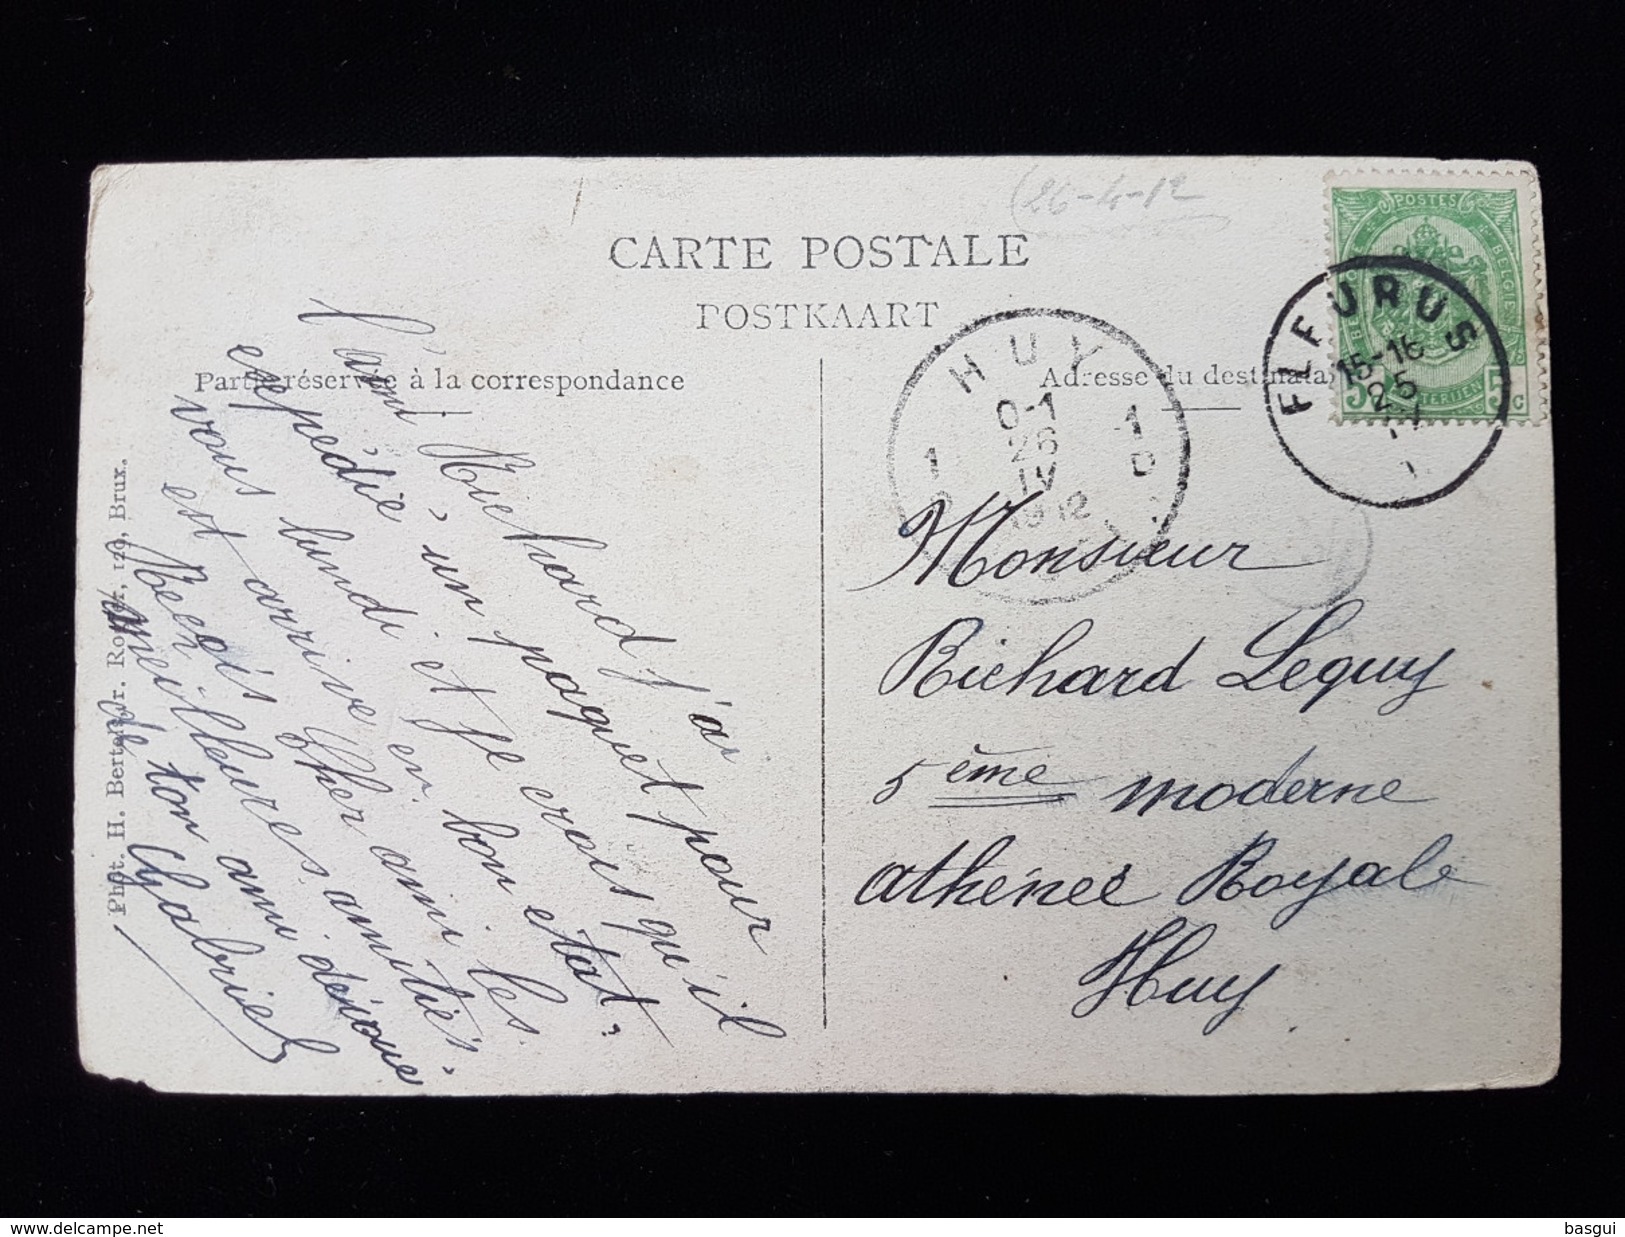 (26-4-12
CARTE POSTALE
POSTKAART
Partie réservée à la correspondance
Adresse du destinata
POSTES
BELGIE
5 5 c
FLEURUS
15-16
25
HUY
0-1
26
IV
1912
1 D
1 D
l'ami Richard j'ai
expédié un paquet pour
vous lundi et je crois qu'il
est arrivé en bon état.
Recois Cher ami les
meilleures amitiés
de ton ami
Gabriel
Monsieur
Richard Lequy
5ème moderne
athénée Royale
Huy
Phot. H. Bertels, r. Rogier, 129, Brux.
delcampe.net
basgui